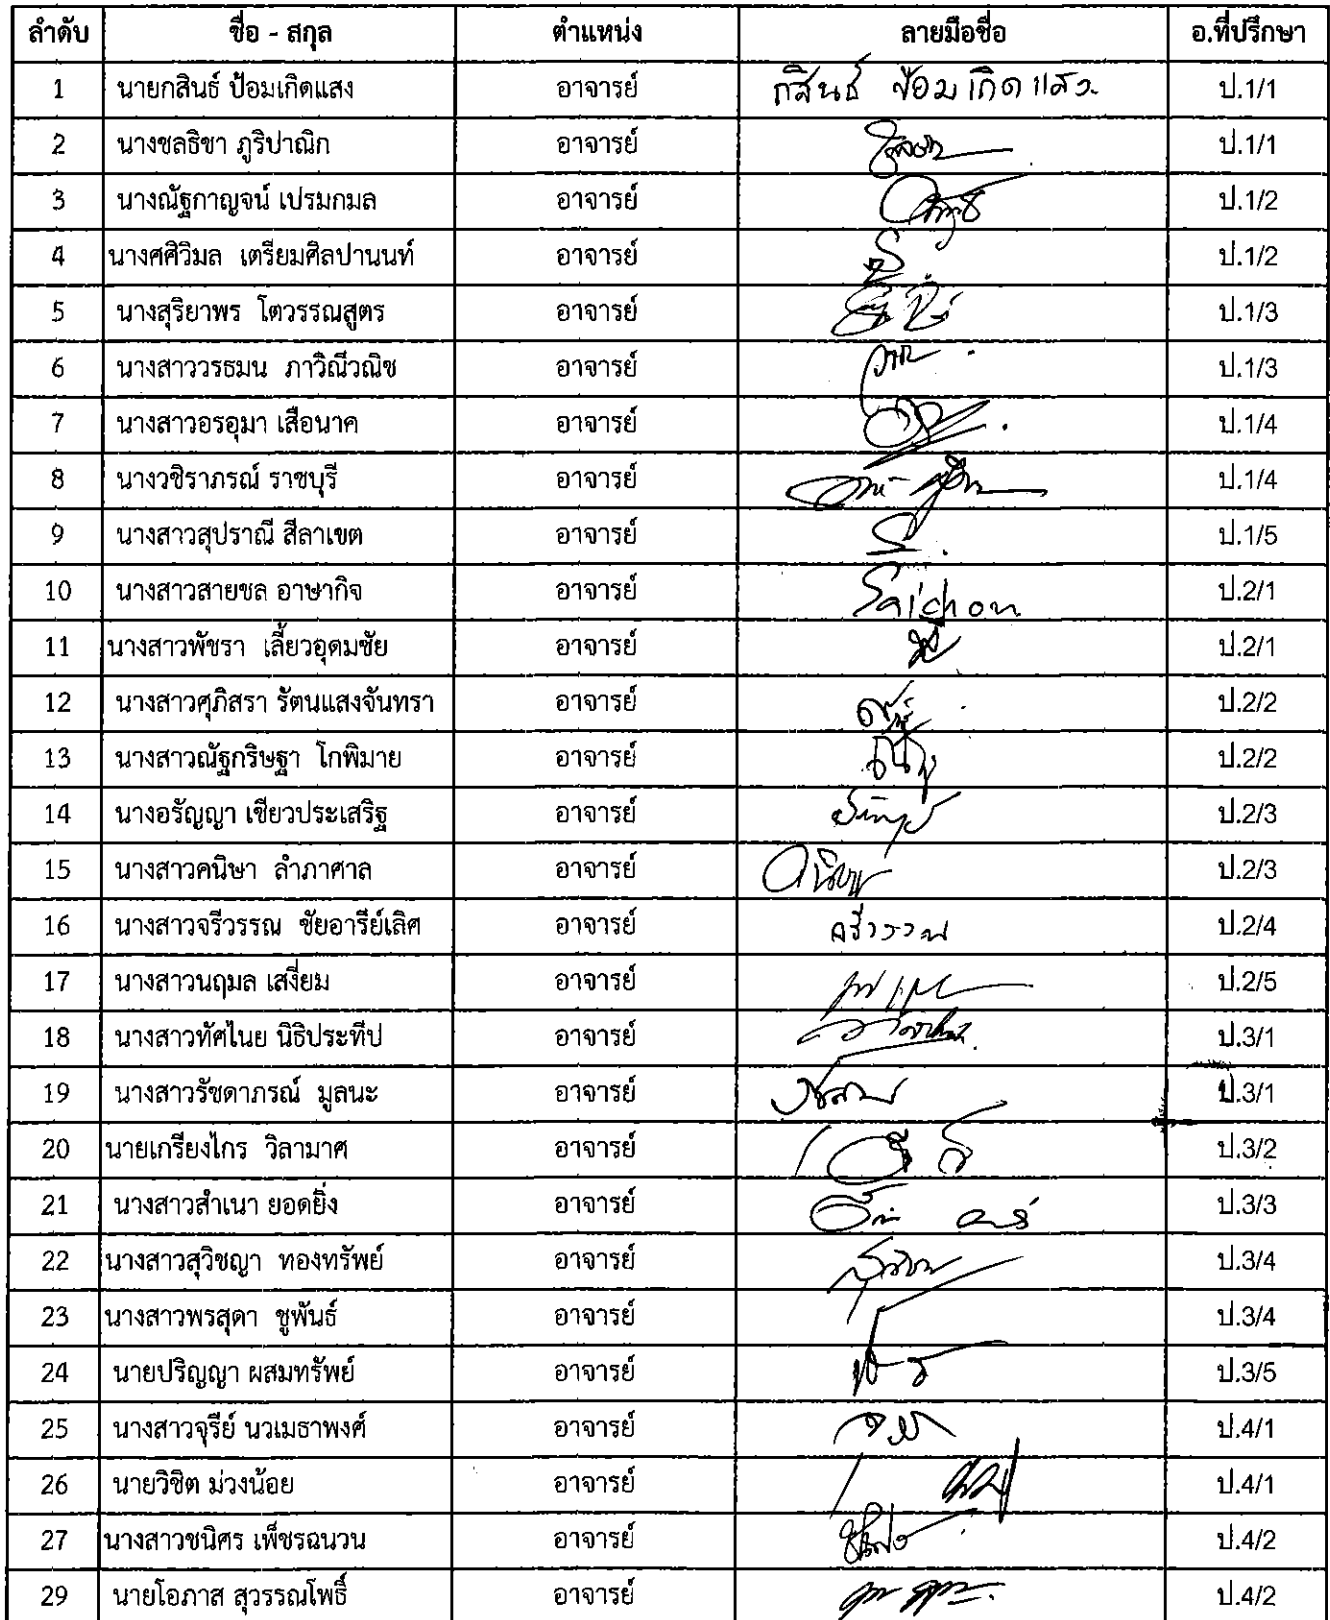 ลำดับ ชื่อ - สกุล ตำแหน่ง ลายมือชื่อ อ.ที่ปรึกษา
1 นายกสินธ์ ป้อมเกิดแสง อาจารย์ กสินธ์ ป้อมเกิดแสง ป.1/1
2 นางชลธิชา ภูริปาณิก อาจารย์ ป.1/1
3 นางณัฐกาญจน์ เปรมกมล อาจารย์ ป.1/2
4 นางศศิวิมล เตรียมศิลปานนท์ อาจารย์ ป.1/2
5 นางสุริยาพร โตวรรณสูตร อาจารย์ ป.1/3
6 นางสาววรธมน ภาวิณีวณิช อาจารย์ ป.1/3
7 นางสาวอรอุมา เสือนาค อาจารย์ ป.1/4
8 นางวชิราภรณ์ ราชบุรี อาจารย์ ป.1/4
9 นางสาวสุปราณี สีลาเขต อาจารย์ ป.1/5
10 นางสาวสายชล อาษากิจ อาจารย์ Saichon ป.2/1
11 นางสาวพัชรา เลี้ยวอุดมชัย อาจารย์ ป.2/1
12 นางสาวศุภิสรา รัตนแสงจันทรา อาจารย์ ป.2/2
13 นางสาวณัฐกริษฐา โกพิมาย อาจารย์ ป.2/2
14 นางอรัญญา เชียวประเสริฐ อาจารย์ ป.2/3
15 นางสาวคนิษา ลำภาศาล อาจารย์ คนิษา ป.2/3
16 นางสาวจรีวรรณ ชัยอารีย์เลิศ อาจารย์ จรีวรรณ ป.2/4
17 นางสาวนฤมล เสงี่ยม อาจารย์ ป.2/5
18 นางสาวทัศไนย นิธิประทีป อาจารย์ ป.3/1
19 นางสาวรัชดาภรณ์ มูลนะ อาจารย์ ป.3/1
20 นายเกรียงไกร วิลามาศ อาจารย์ ป.3/2
21 นางสาวสำเนา ยอดยิ่ง อาจารย์ ป.3/3
22 นางสาวสุวิชญา ทองทรัพย์ อาจารย์ ป.3/4
23 นางสาวพรสุดา ชูพันธ์ อาจารย์ ป.3/4
24 นายปริญญา ผสมทรัพย์ อาจารย์ ป.3/5
25 นางสาวจุรีย์ นวเมธาพงศ์ อาจารย์ ป.4/1
26 นายวิชิต ม่วงน้อย อาจารย์ ป.4/1
27 นางสาวชนิศร เพ็ชรฉนวน อาจารย์ ป.4/2
29 นายโอภาส สุวรรณโพธิ์ อาจารย์ ป.4/2